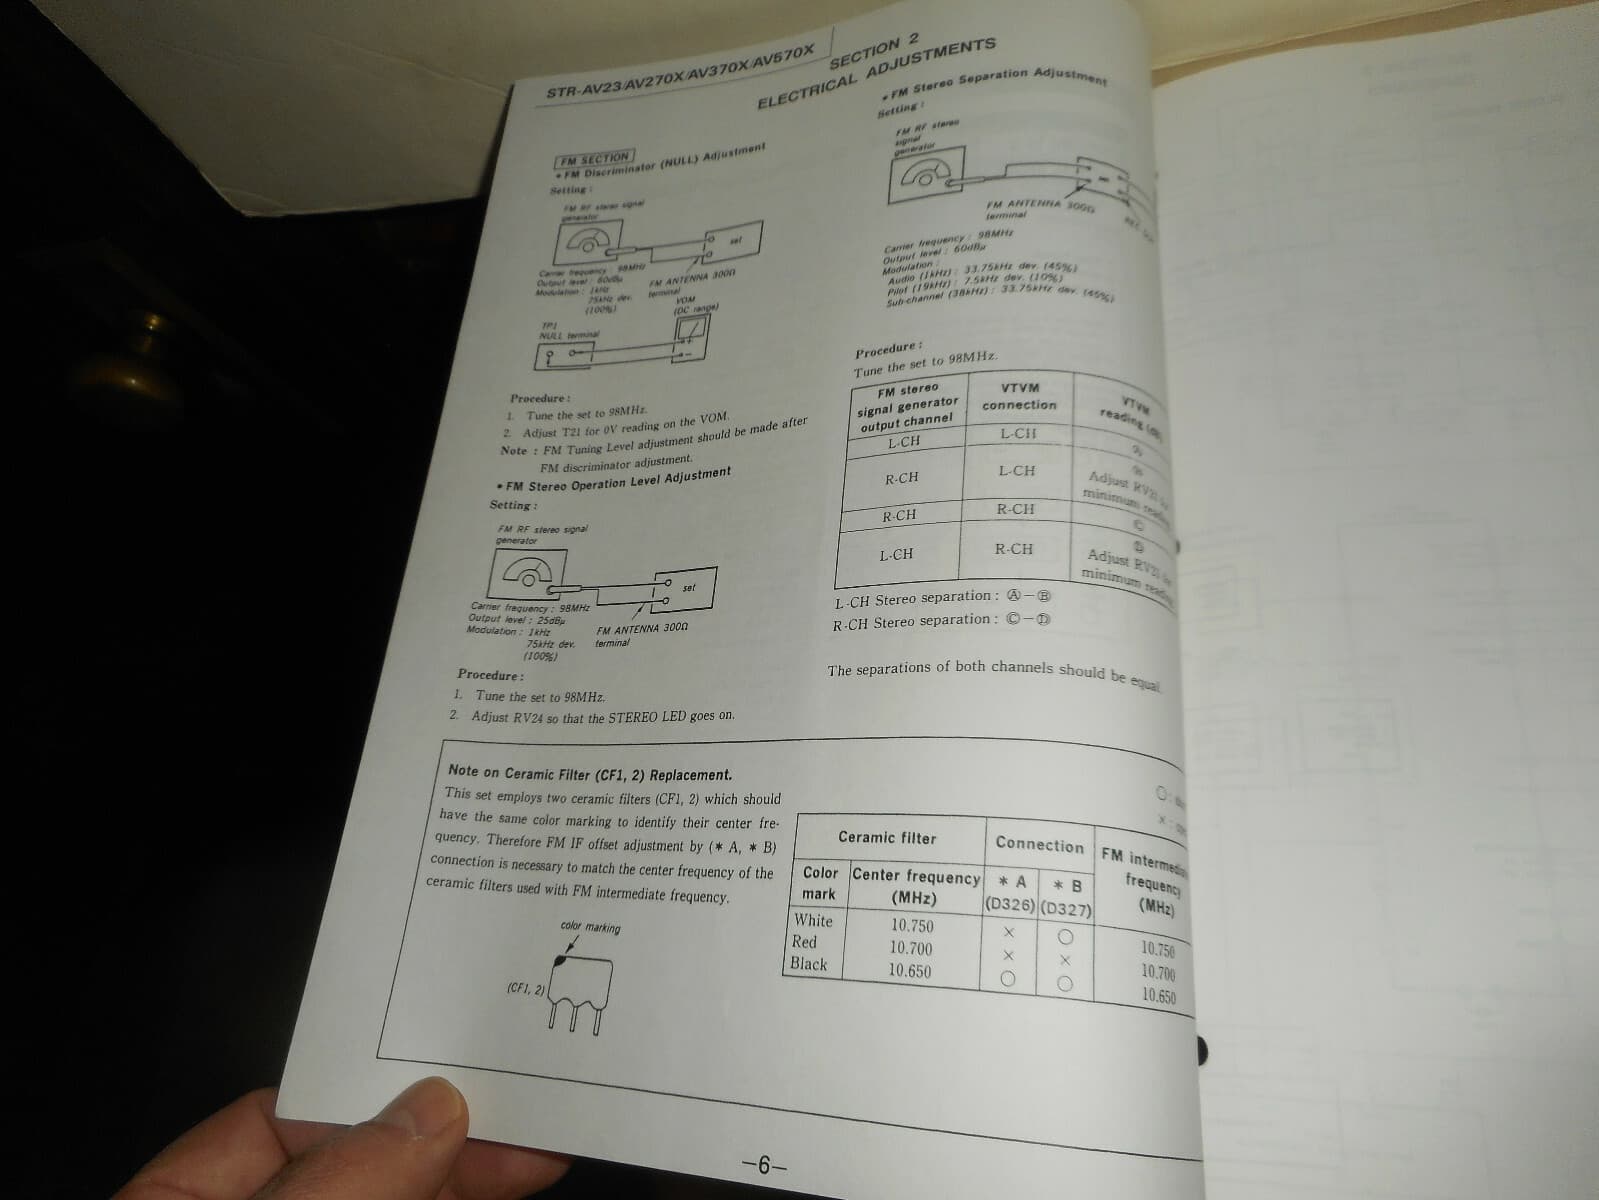 STR-AV23/AV270X/AV370X/AV570X
SECTION 2
ELECTRICAL ADJUSTMENTS
FM SECTION
• FM Discriminator (NULL) Adjustment
Setting :
FM RF stereo signal
generator
set
Carrier frequency : 98MHz
Output level : 60dBμ
Modulation : 1kHz
75kHz dev.
(100%)
FM ANTENNA 300Ω
terminal
VOM
(DC range)
TP1
NULL terminal
+
−
Procedure :
1. Tune the set to 98MHz.
2. Adjust T21 for 0V reading on the VOM.
Note : FM Tuning Level adjustment should be made after
FM discriminator adjustment.
• FM Stereo Operation Level Adjustment
Setting :
FM RF stereo signal
generator
set
Carrier frequency : 98MHz
Output level : 25dBμ
Modulation : 1kHz
75kHz dev.
(100%)
FM ANTENNA 300Ω
terminal
Procedure :
1. Tune the set to 98MHz.
2. Adjust RV24 so that the STEREO LED goes on.
• FM Stereo Separation Adjustment
Setting :
FM RF stereo
signal
generator
FM ANTENNA 300Ω
terminal
Carrier frequency : 98MHz
Output level : 60dBμ
Modulation :
Audio (1kHz) : 33.75kHz dev. (45%)
Pilot (19kHz) : 7.5kHz dev. (10%)
Sub-channel (38kHz) : 33.75kHz dev. (45%)
Procedure :
Tune the set to 98MHz.
FM stereo
signal generator
output channel
VTVM
connection
VTVM
reading (dB)
L-CH L-CH Ⓐ
R-CH L-CH Ⓑ
Adjust
minimum
R-CH R-CH Ⓒ
L-CH R-CH Ⓓ
Adjust
minimum
L-CH Stereo separation : Ⓐ−Ⓑ
R-CH Stereo separation : Ⓒ−Ⓓ
The separations of both channels should be equal.
Note on Ceramic Filter (CF1, 2) Replacement.
This set employs two ceramic filters (CF1, 2) which should
have the same color marking to identify their center fre-
quency. Therefore FM IF offset adjustment by (* A, * B)
connection is necessary to match the center frequency of the
ceramic filters used with FM intermediate frequency.
color marking
(CF1, 2)
○ :
× :
Ceramic filter
Connection
FM intermediate
frequency
(MHz)
Color
mark
Center frequency
(MHz)
* A
(D326)
* B
(D327)
White 10.750 × ○ 10.750
Red 10.700 × × 10.700
Black 10.650 ○ ○ 10.650
−6−